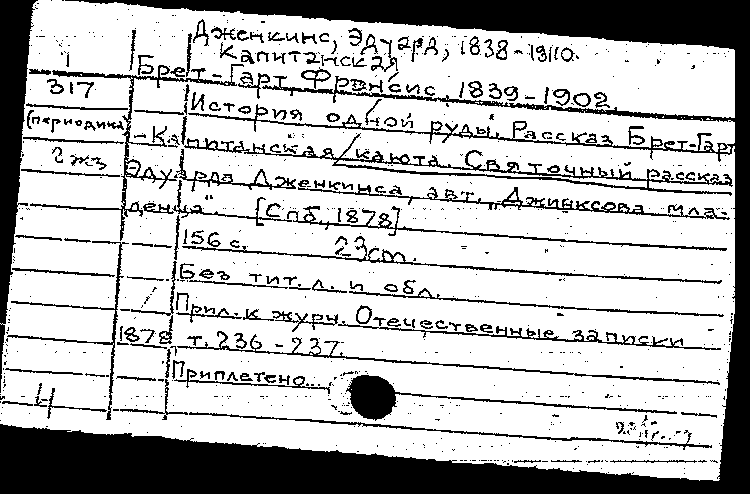 Дженкинс, Эдуард, 1838-1910.
Капитанская
1
Брет-Гарт, Фрэнсис, 1839-1902.
317
История одной руды. Рассказ Брет-Гарт
(периодика)
-Капитанская/каюта. Святочный рассказ
2жз
Эдуарда Дженкинса, авт. „Джинксова мла-
денца". [Спб., 1878].
156 с. 23cm.
Без тит. л. и обл.
Прил. к журн. Отечественные записки
1878 т. 236-237.
Приплетено...
4